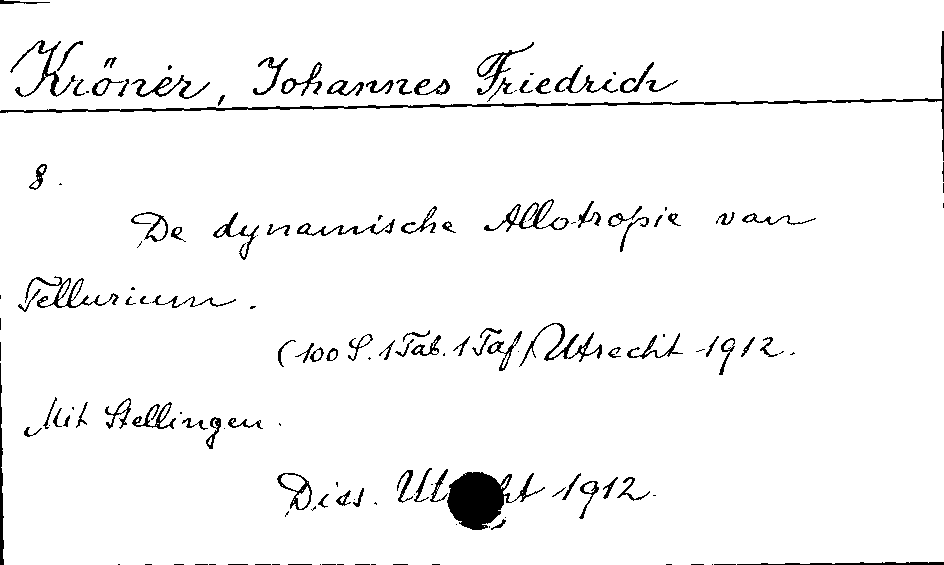 Kröner, Johannes Friedrich
8.
De dynamische Allotropie van
Tellurium.
(100 S. 1 Tab. 1 Taf) Utrecht 1912.
Mit Stellingen.
Diss. 1912.